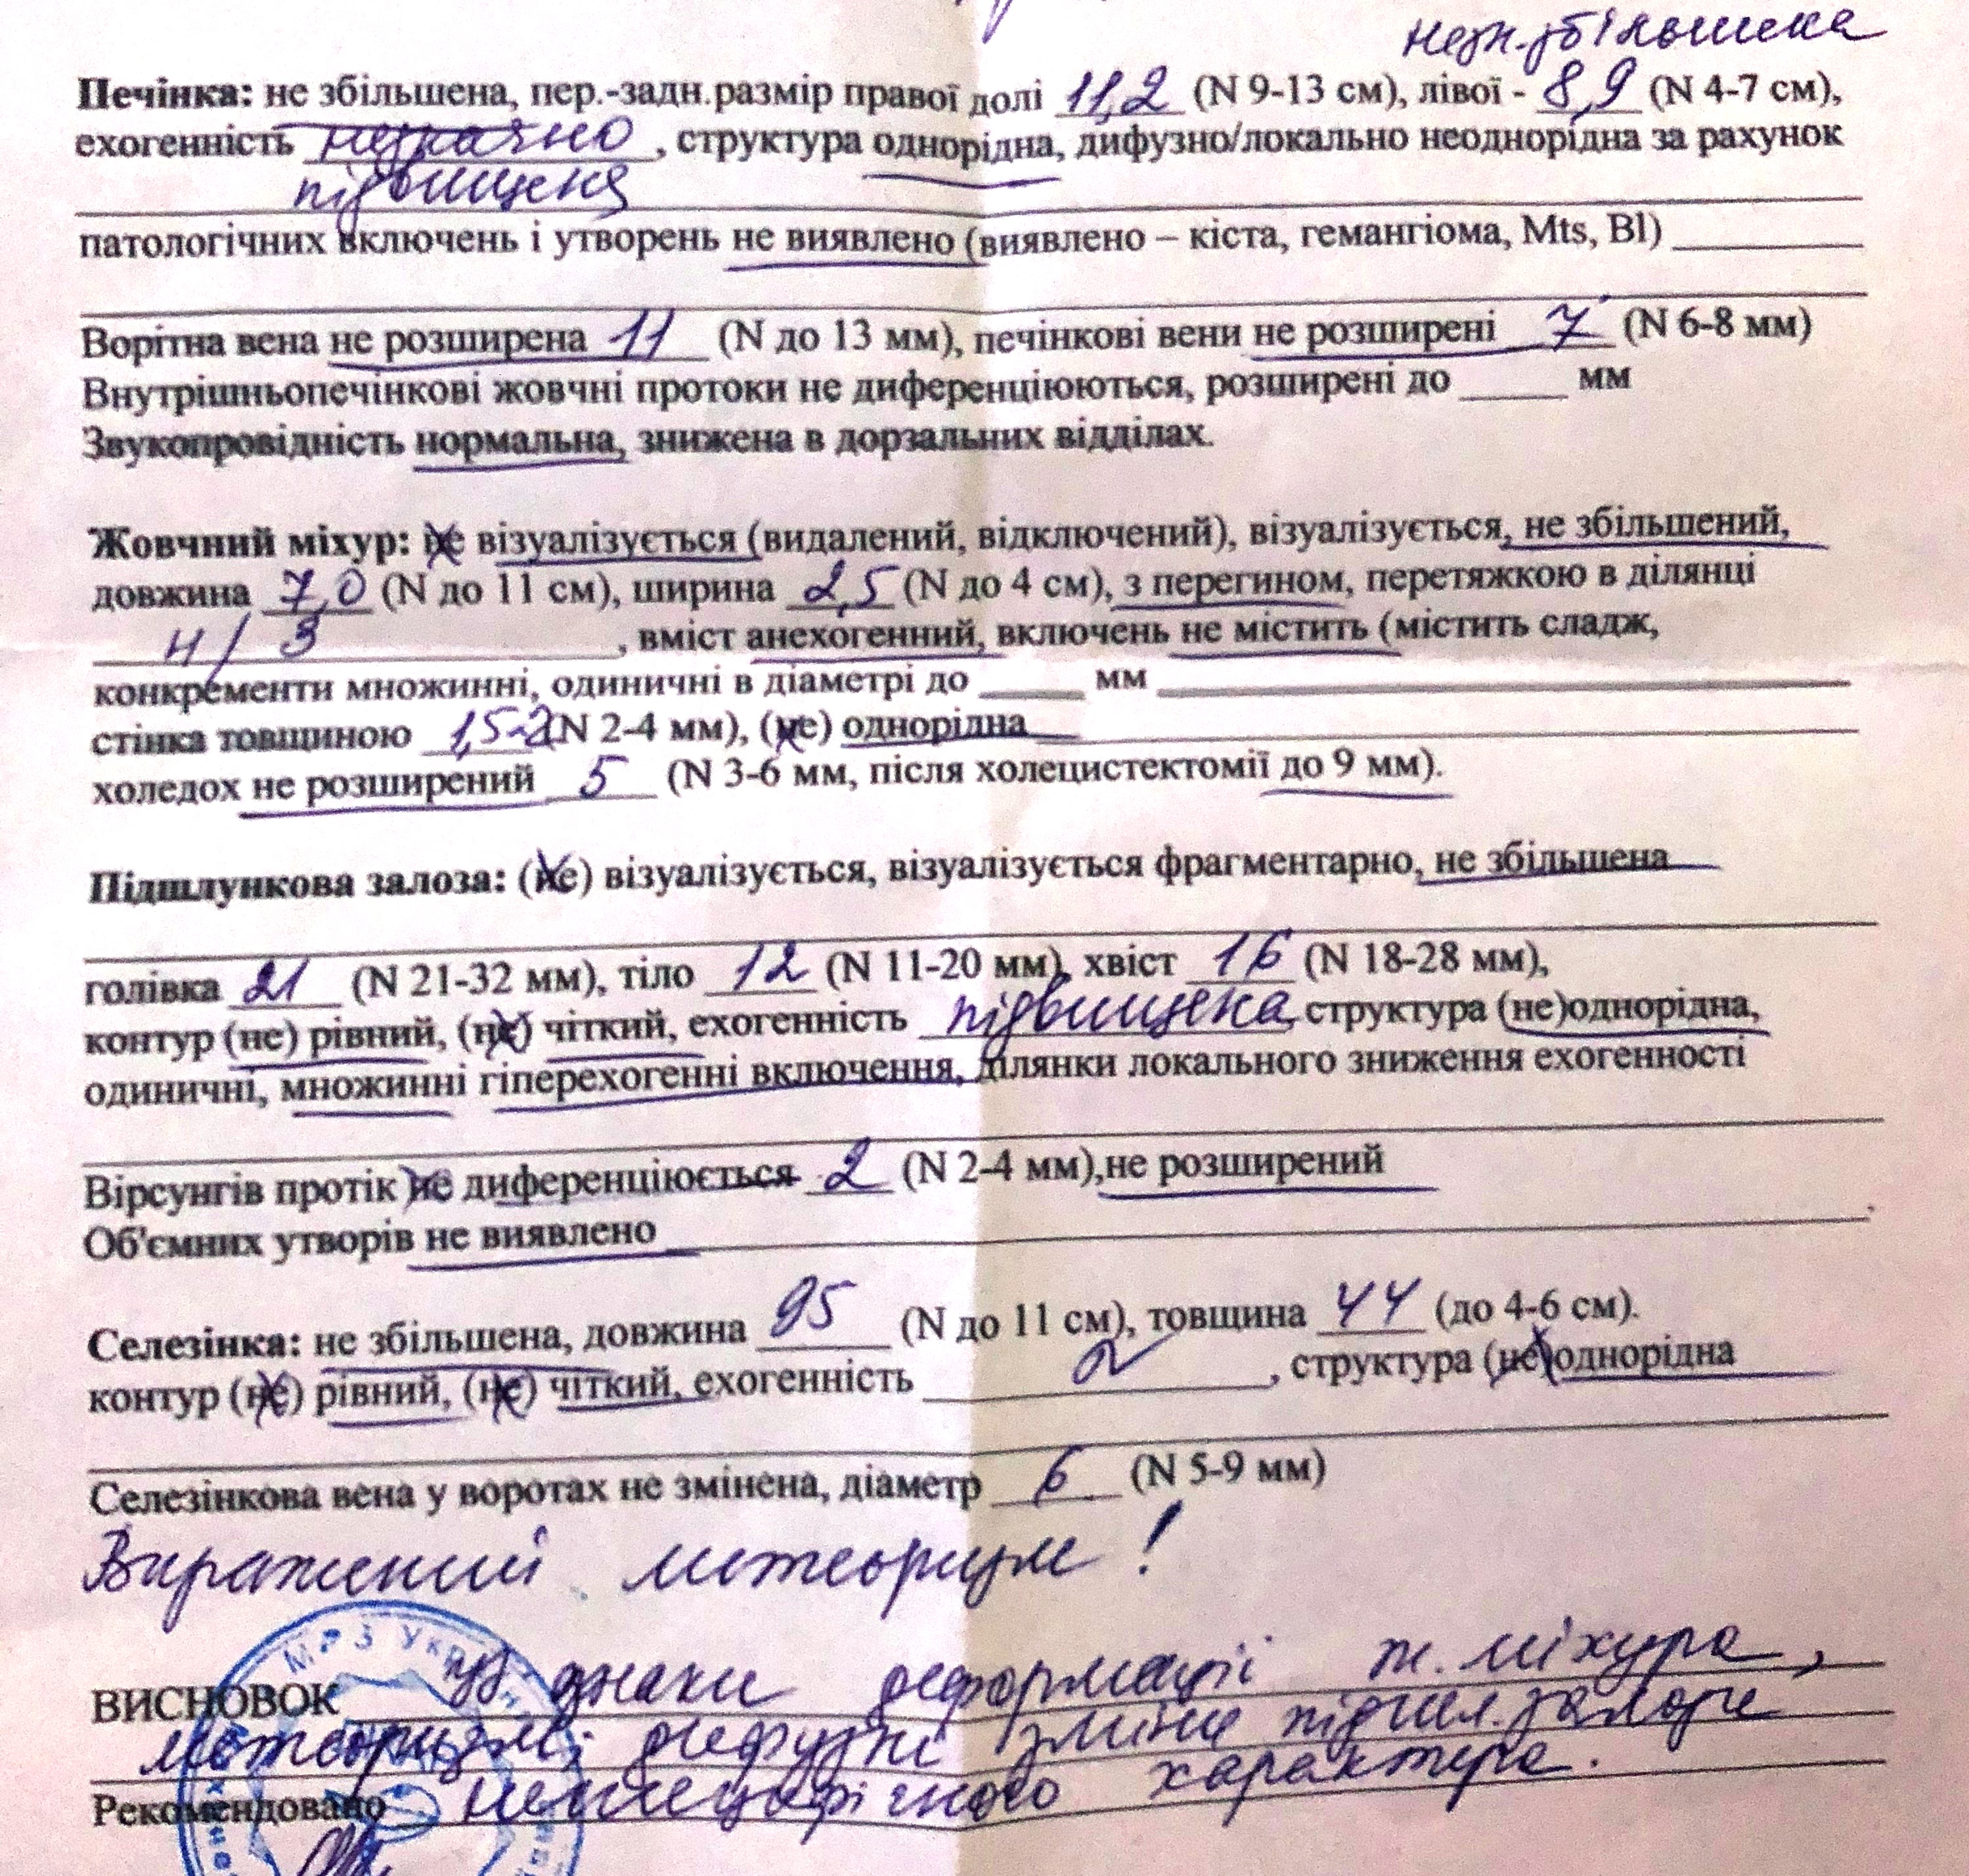 незн. збільшена
Печінка: не збільшена, пер.-задн.размір правої долі 11,2 (N 9-13 см), лівої - 8,9 (N 4-7 см),
ехогенність незначно, структура однорідна, дифузно/локально неоднорідна за рахунок
підвищена
патологічних включень і утворень не виявлено (виявлено – кіста, гемангіома, Mts, Bl)
Ворітна вена не розширена 11 (N до 13 мм), печінкові вени не розширені 7 (N 6-8 мм)
Внутрішньопечінкові жовчні протоки не диференціюються, розширені до ____ мм
Звукопровідність нормальна, знижена в дорзальних відділах.
Жовчний міхур: не візуалізується (видалений, відключений), візуалізується, не збільшений,
довжина 7,0 (N до 11 см), ширина 2,5 (N до 4 см), з перегином, перетяжкою в ділянці
н/3, вміст анехогенний, включень не містить (містить сладж,
конкременти множинні, одиничні в діаметрі до ____ мм
стінка товщиною 1,5-2 (N 2-4 мм), (не) однорідна
холедох не розширений 5 (N 3-6 мм, після холецистектомії до 9 мм).
Підшлункова залоза: (не) візуалізується, візуалізується фрагментарно, не збільшена
голівка 21 (N 21-32 мм), тіло 12 (N 11-20 мм), хвіст 16 (N 18-28 мм),
контур (не) рівний, (не) чіткий, ехогенність підвищена структура (не)однорідна,
одиничні, множинні гіперехогенні включення, ділянки локального зниження ехогенності
Вірсунгів протік не диференціюється 2 (N 2-4 мм),не розширений
Об'ємних утворів не виявлено
Селезінка: не збільшена, довжина 95 (N до 11 см), товщина 44 (до 4-6 см).
контур (не) рівний, (не) чіткий, ехогенність ____, структура (не)однорідна
Селезінкова вена у воротах не змінена, діаметр 6 (N 5-9 мм)
Виражений метеоризм!
ВИСНОВОК УЗ ознаки деформації ж. міхура,
метеоризм; дифузні зміни підшл. залози
Рекомендовано неспецифічного характера.